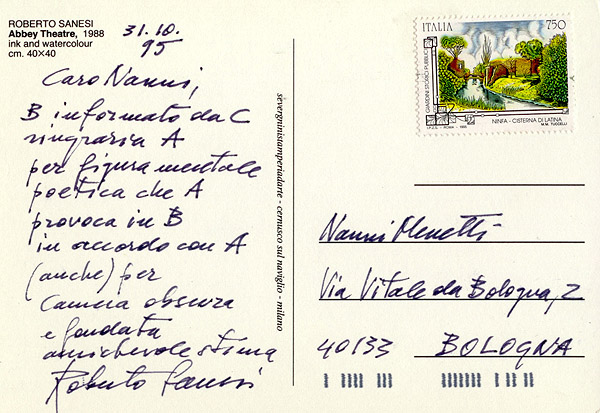 ROBERTO SANESI
Abbey Theatre, 1988
ink and watercolour
cm. 40×40
31.10.
95
Caro Nanni,
B informato da C
ringrazia A
per figura mentale
poetica che A
provoca in B
in accordo con A
(anche) per
Camera obscura
e fondata
amichevole stima
Roberto Sanesi
severgninistamperiadarte - cernusco sul naviglio - milano
ITALIA 750
GIARDINI STORICI PUBBLICI
NINFA - CISTERNA DI LATINA
I.P.Z.S. - ROMA - 1995
M.M. TUCCELLI
Nanni Menetti
Via Vitale da Bologna, 2
40133 BOLOGNA